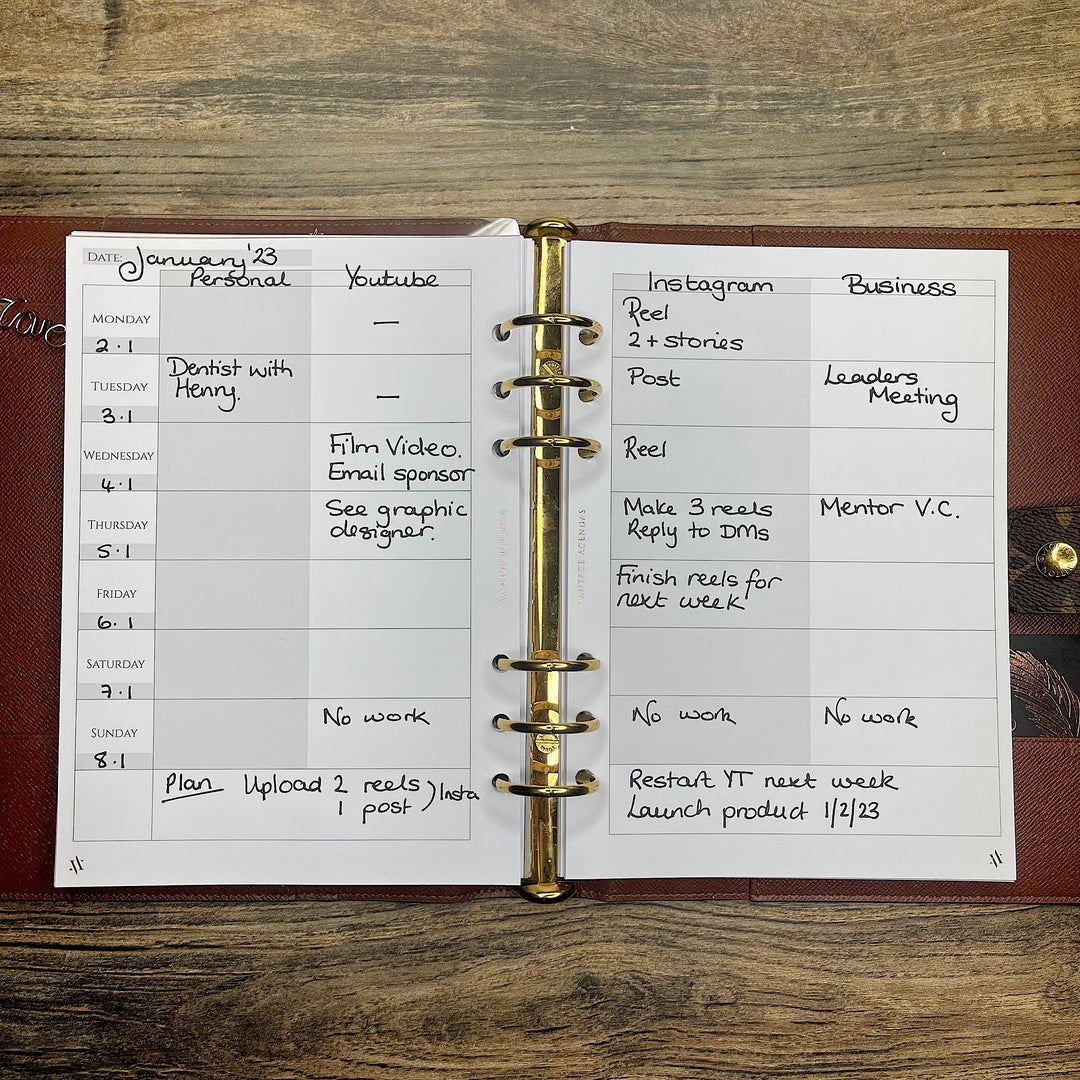 DATE: January '23
Personal Youtube
MONDAY —
2.1
TUESDAY Dentist with
Henry. —
3.1
WEDNESDAY Film Video.
Email sponsor
4.1
THURSDAY See graphic
designer.
5.1
FRIDAY
6.1
SATURDAY
7.1
SUNDAY No work
8.1
Plan Upload 2 reels
1 post ) Insta
VANTAGE AGENDAS
Love
Instagram Business
Reel
2 + stories
Post Leaders
Meeting
Reel
Make 3 reels Mentor V.C.
Reply to DMs
Finish reels for
next week
No work No work
Restart YT next week
Launch product 1/2/23
VANTAGE AGENDAS